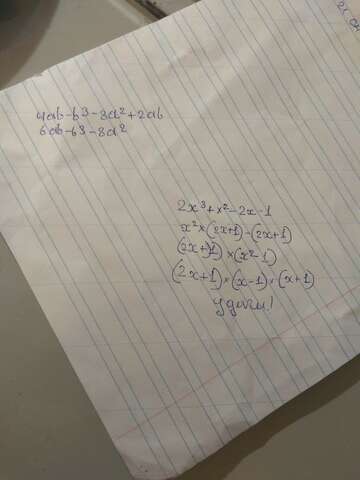 4ab-b³-8a²+2ab
6ab-b³-8a²
2x³+x²-2x-1
x²×(2x+1)-(2x+1)
(2x+1)×(x²-1)
(2x+1)×(x-1)×(x+1)
удачи!